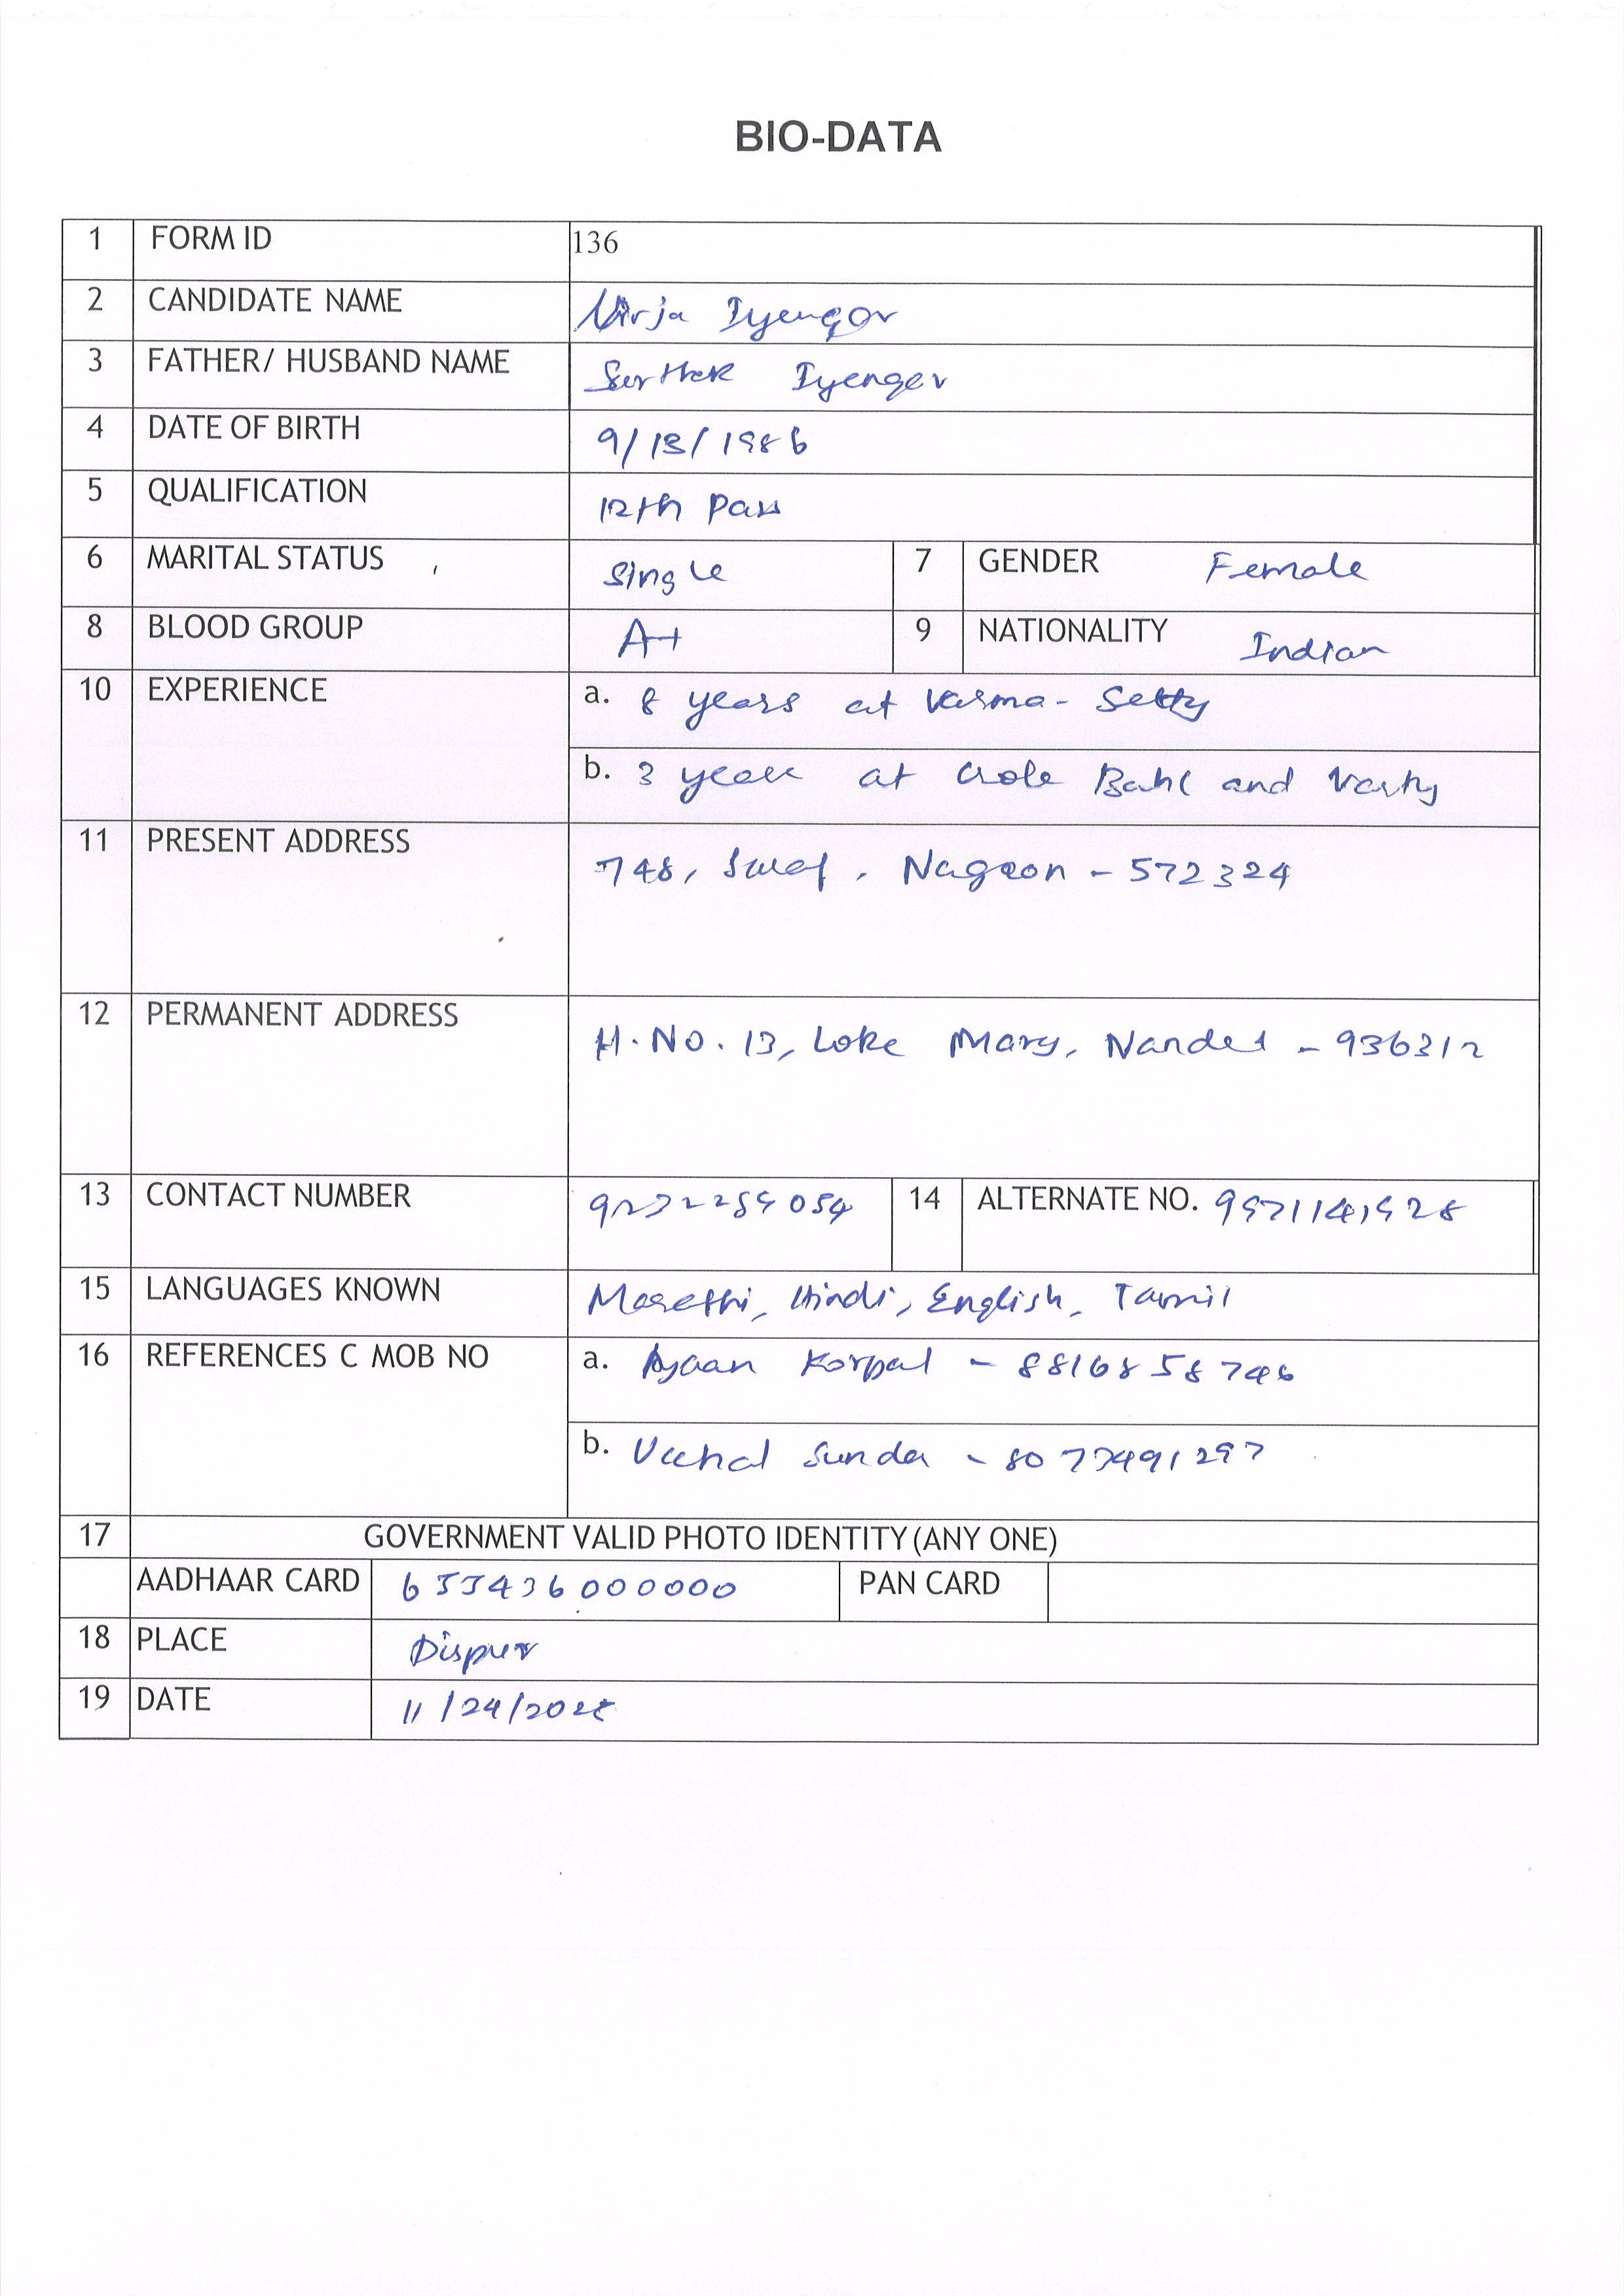 BIO-DATA
1 FORM ID 136
2 CANDIDATE NAME Nirja Iyengar
3 FATHER/ HUSBAND NAME Sarthak Iyengar
4 DATE OF BIRTH 9/13/1986
5 QUALIFICATION 12th Pass
6 MARITAL STATUS Single 7 GENDER Female
8 BLOOD GROUP A+ 9 NATIONALITY Indian
10 EXPERIENCE a. 8 years at Varma-Setty
b. 3 years at Bahl and
11 PRESENT ADDRESS 748, Nagaon - 572324
12 PERMANENT ADDRESS H.No. 13, Loke Marg, Nanded - 936312
13 CONTACT NUMBER 14 ALTERNATE NO.
15 LANGUAGES KNOWN Marathi, Hindi, English, Tamil
16 REFERENCES C MOB NO a. Ayaan Korpal - 8816858746
b. Sunda - 8077491297
17 GOVERNMENT VALID PHOTO IDENTITY (ANY ONE)
AADHAAR CARD PAN CARD
18 PLACE Dispur
19 DATE 11/24/2025